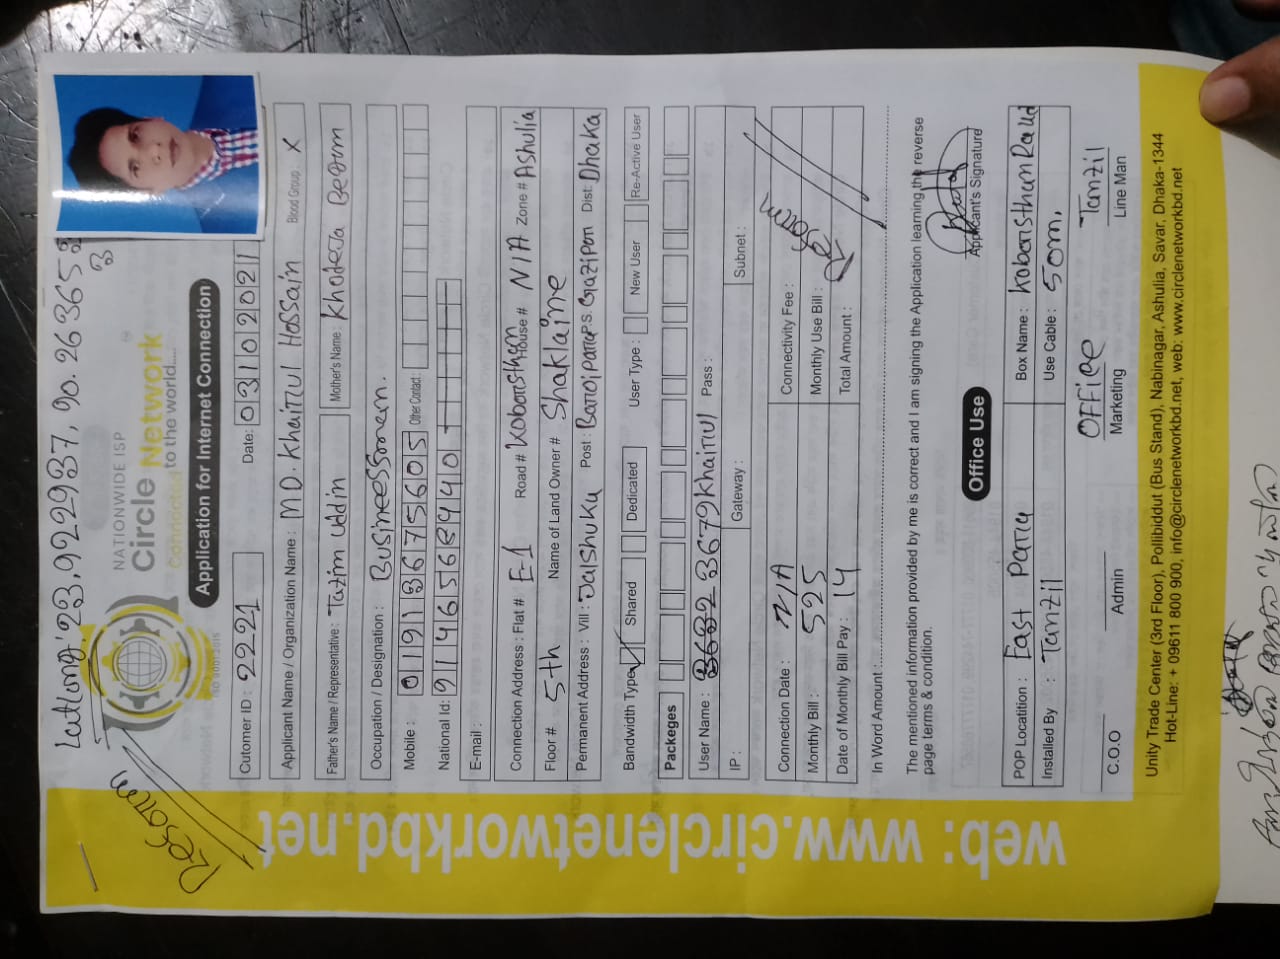 Latlong: 23.922937, 90.263658
NATIONWIDE ISP
Circle Network
Connected to the world.....
ISO 9001:2015
Resorm
Application for Internet Connection
Cutomer ID : 2221 Date: 03102021
Applicant Name / Organization Name : MD. Khairul Hossain Blood Group : X
Father's Name / Representative : Tazim uddin Mother's Name : Khodeja Begum
Occupation / Designation : BusineesSmean.
Mobile : 01918675605 Other Contact :
National Id: 9146568440
E-mail :
Connection Address : Flat # E-1 Road # koborsthan House # N/A Zone # Ashulia
Floor # 5th Name of Land Owner # Shaklaine
Permanent Address : Vill : Jalshuku Post : Baroiparia P.S. Gazipon Dist: Dhaka
Bandwidth Type Shared Dedicated User Type : New User Re-Active User
Packeges
User Name : 3679khairul Pass :
IP : Gateway : Subnet :
Connection Date : N/A Connectivity Fee :
Monthly Bill : 525 Monthly Use Bill : Resorm
Date of Monthly Bill Pay : 14 Total Amount :
In Word Amount :
The mentioned information provided by me is correct and I am signing the Application learning the reverse
page terms & condition.
Applicant's Signature
Office Use
POP Locatition : East Para Box Name : koborsthan Raud
Installed By : Tanzil Use Cable : 50m.
OFFice Tanzil
C.O.O Admin Marketing Line Man
Unity Trade Center (3rd Floor), Pollibiddut (Bus Stand), Nabinagar, Ashulia, Savar, Dhaka-1344
Hot-Line: + 09611 800 900, info@circlenetworkbd.net, web: www.circlenetworkbd.net
web: www.circlenetworkbd.net